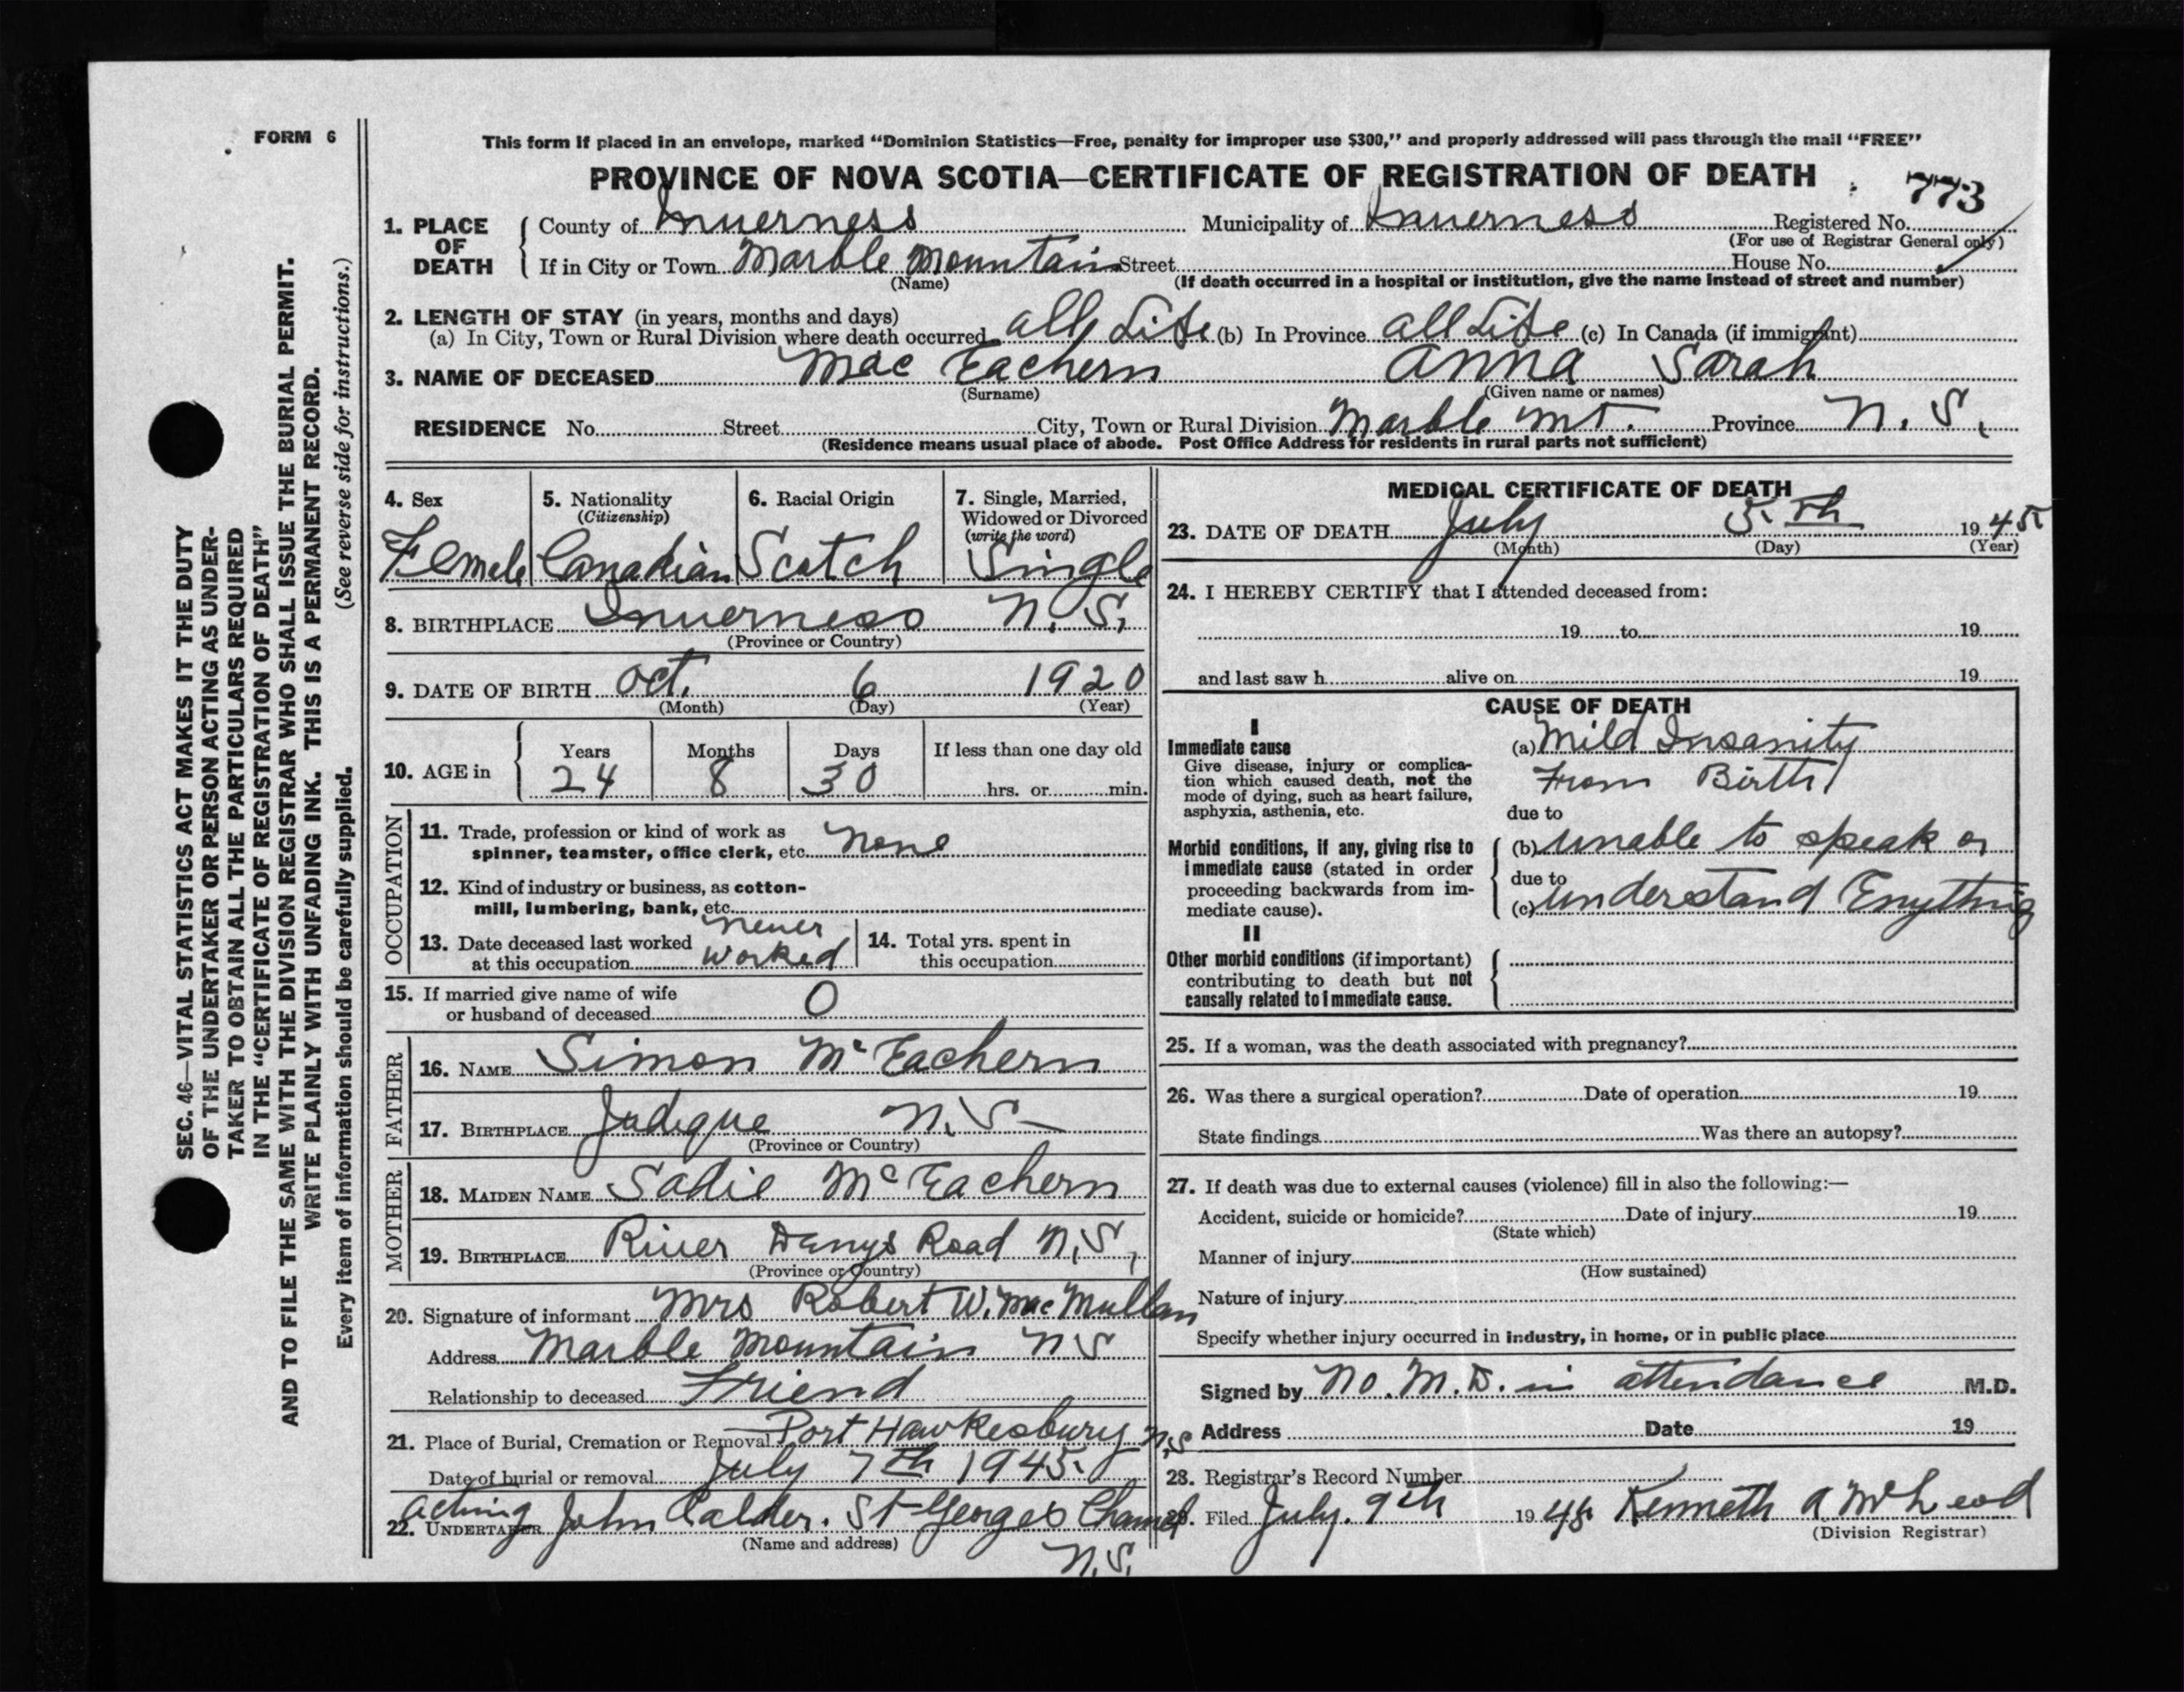 FORM 6
This form if placed in an envelope, marked “Dominion Statistics—Free, penalty for improper use $300,” and properly addressed will pass through the mail “FREE”
PROVINCE OF NOVA SCOTIA—CERTIFICATE OF REGISTRATION OF DEATH
773
1. PLACE OF DEATH County of Inverness Municipality of Inverness Registered No.
(For use of Registrar General only)
If in City or Town Marble Mountain Street House No.
(Name) (If death occurred in a hospital or institution, give the name instead of street and number)
2. LENGTH OF STAY (in years, months and days)
(a) In City, Town or Rural Division where death occurred all Life (b) In Province all Life (c) In Canada (if immigrant)
3. NAME OF DECEASED Mac Eachern Anna Sarah
(Surname) (Given name or names)
RESIDENCE No. Street City, Town or Rural Division Marble Mt. Province N. S.
(Residence means usual place of abode. Post Office Address for residents in rural parts not sufficient)
4. Sex
Femele
5. Nationality
(Citizenship)
Canadian
6. Racial Origin
Scotch
7. Single, Married,
Widowed or Divorced
(write the word)
Single
8. BIRTHPLACE Inverness N. S.
(Province or Country)
9. DATE OF BIRTH Oct. 6 1920
(Month) (Day) (Year)
10. AGE in Years Months Days If less than one day old
24 8 30 hrs. or min.
OCCUPATION
11. Trade, profession or kind of work as
spinner, teamster, office clerk, etc. None
12. Kind of industry or business, as cotton-
mill, lumbering, bank, etc.
13. Date deceased last worked never
at this occupation worked
14. Total yrs. spent in
this occupation
15. If married give name of wife
or husband of deceased 0
FATHER
16. NAME Simon Mc Eachern
17. BIRTHPLACE Judique N. S.
(Province or Country)
MOTHER
18. MAIDEN NAME Sadie Mc Eachern
19. BIRTHPLACE River Denys Road N. S.
(Province or Country)
20. Signature of informant Mrs Robert W. Mac Mullan
Address Marble Mountain N S
Relationship to deceased Friend
21. Place of Burial, Cremation or Removal Port Hawkesbury N.S
Date of burial or removal July 7th 1945.
acting
22. UNDERTAKER John Calder. St Georges Channel
(Name and address) N. S.
MEDICAL CERTIFICATE OF DEATH
23. DATE OF DEATH July 5th 1945
(Month) (Day) (Year)
24. I HEREBY CERTIFY that I attended deceased from:
19 to 19
and last saw h alive on 19
CAUSE OF DEATH
I
Immediate cause
Give disease, injury or complica-
tion which caused death, not the
mode of dying, such as heart failure,
asphyxia, asthenia, etc.
(a) Mild Insanity
From Birth
due to
Morbid conditions, if any, giving rise to
immediate cause (stated in order
proceeding backwards from im-
mediate cause).
(b) unable to speak or
due to
(c) understand Enything
II
Other morbid conditions (if important)
contributing to death but not
causally related to immediate cause.
25. If a woman, was the death associated with pregnancy?
26. Was there a surgical operation? Date of operation 19
State findings Was there an autopsy?
27. If death was due to external causes (violence) fill in also the following:—
Accident, suicide or homicide? Date of injury 19
(State which)
Manner of injury
(How sustained)
Nature of injury
Specify whether injury occurred in industry, in home, or in public place
Signed by No. M. D. in attendance M.D.
Address Date 19
28. Registrar's Record Number
29. Filed July. 9th 1945 Kenneth A McLeod
(Division Registrar)
SEC. 46—VITAL STATISTICS ACT MAKES IT THE DUTY
OF THE UNDERTAKER OR PERSON ACTING AS UNDER-
TAKER TO OBTAIN ALL THE PARTICULARS REQUIRED
IN THE “CERTIFICATE OF REGISTRATION OF DEATH”
AND TO FILE THE SAME WITH THE DIVISION REGISTRAR WHO SHALL ISSUE THE BURIAL PERMIT.
WRITE PLAINLY WITH UNFADING INK. THIS IS A PERMANENT RECORD.
Every item of information should be carefully supplied. (See reverse side for instructions.)